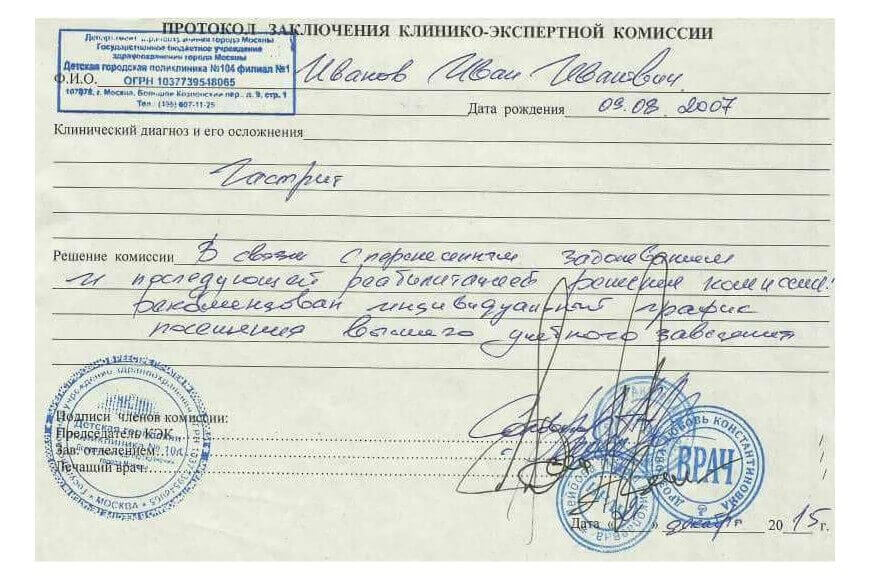 ПРОТОКОЛ ЗАКЛЮЧЕНИЯ КЛИНИКО-ЭКСПЕРТНОЙ КОМИССИИ
Департамент здравоохранения города Москвы
Государственное бюджетное учреждение
здравоохранения города Москвы
Детская городская поликлиника №104 филиал №1
ОГРН 1037739548065
107078, г. Москва, Большой Козловский пер., д. 9, стр. 1
Тел. (495) 607-11-25
Ф.И.О. Иванов Иван Иванович
Дата рождения 09.08.2007
Клинический диагноз и его осложнения
Гастрит
Решение комиссии В связи с перенесенным заболеванием
и последующей реабилитацией решением комиссии
рекомендован индивидуальный график
посещения высшего учебного заведения
Подписи членов комиссии:
Председатель КЭК
Зав. отделением
Лечащий врач
Детская городская
поликлиника №
МОСКВА
ЛЮБОВЬ КОНСТАНТИНОВНА
ВРАЧ
Дата « » декабря 2015 г.